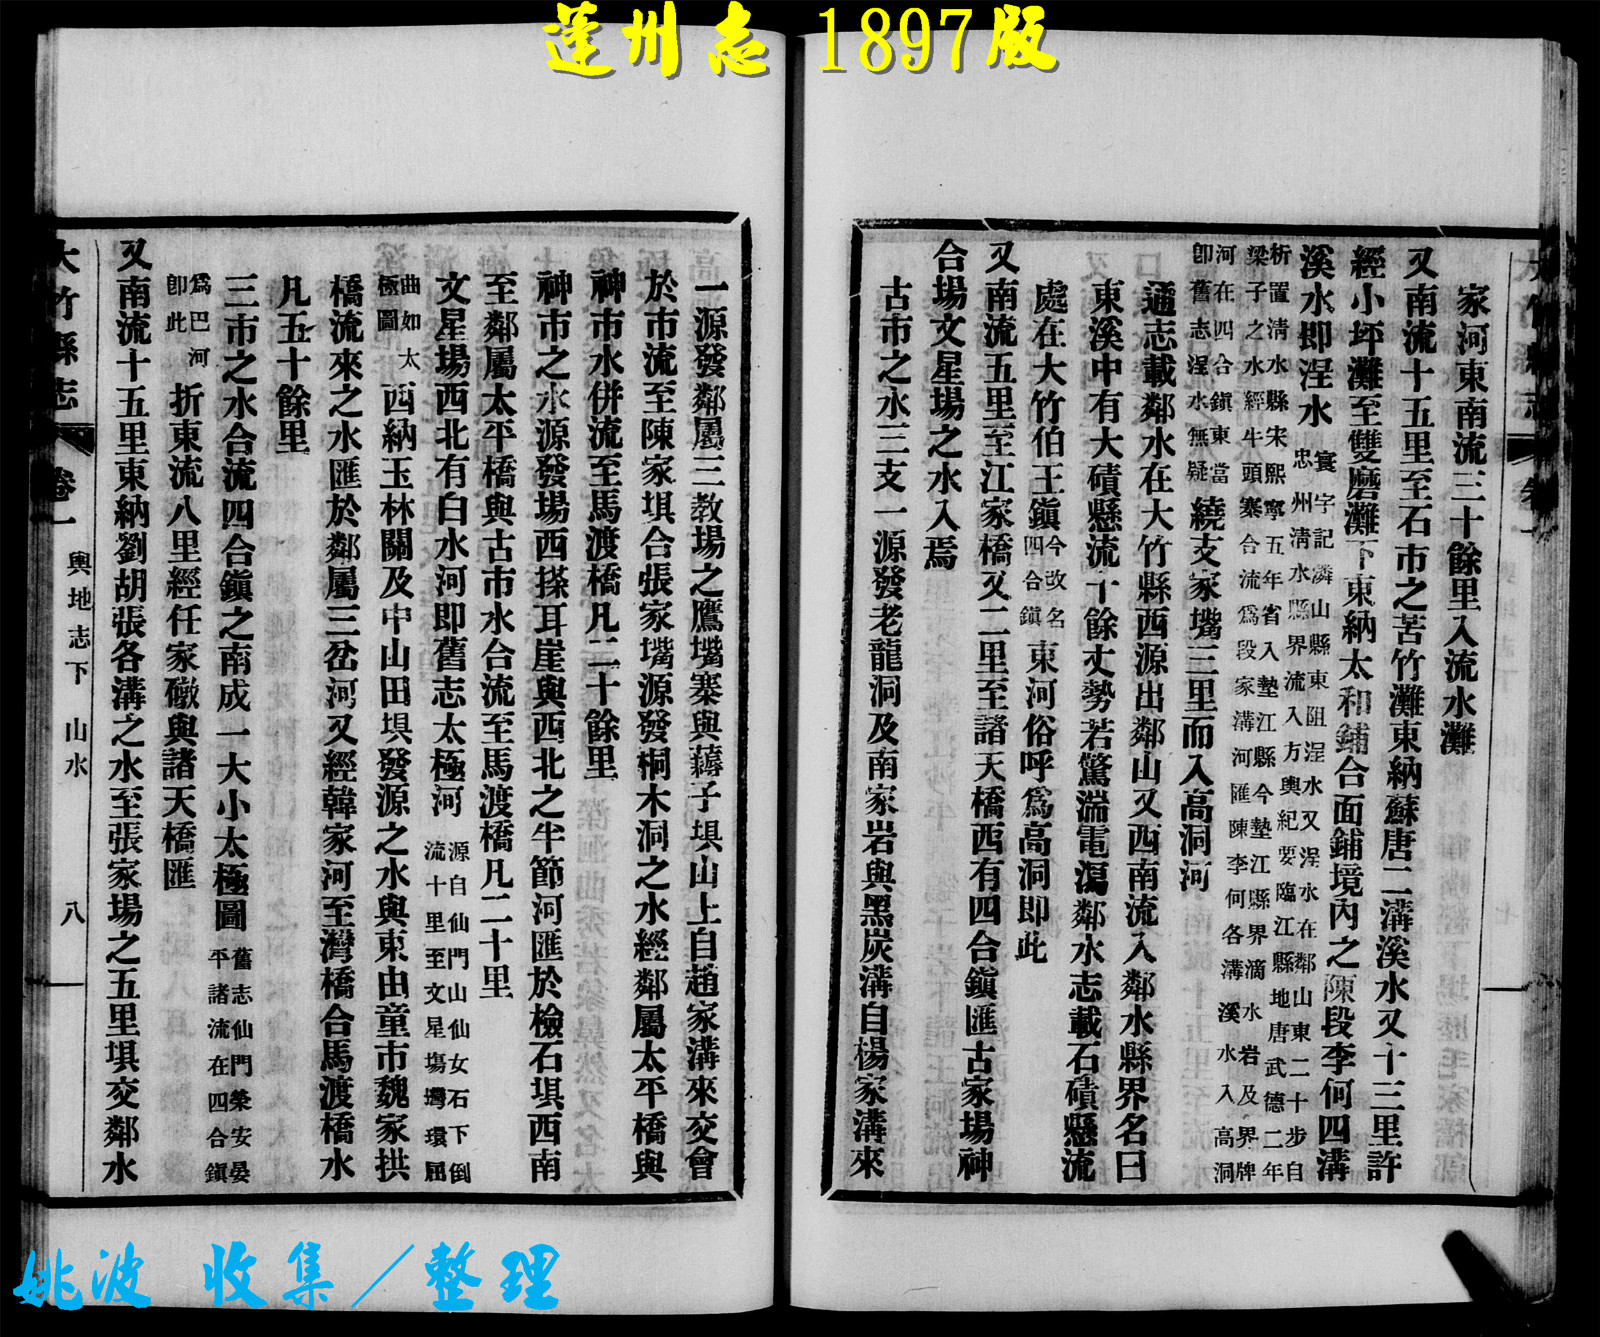 蓬州志 1897版
家河東南流三十餘里入流水灘
又南流十五里至石市之苦竹灘東納蘇唐二溝溪水又十三里許
經小坪灘至雙磨灘下東納太和鋪合面鋪境內之陳段李何四溝
溪水即涅水
寰宇記潾山縣東阻涅水又涅水在鄰山東二十步自
忠州清水縣界流入方輿紀要臨江縣地唐武德二年
析置清水縣宋熙寧五年省入墊江縣今墊江縣界滴水岩及界牌
梁子之水經牛頭寨合流爲段家溝河匯陳李何各溝溪水入高洞
河在四合鎭東當
卽舊志涅水無疑
繞支家嘴三里而入高洞河
通志載鄰水在大竹縣西源出鄰山又西南流入鄰水縣界名曰
東溪中有大磧懸流十餘丈勢若驚湍電瀉鄰水志載石磧懸流
處在大竹伯王鎭
今改名
四合鎭
東河俗呼爲高洞即此
又南流五里至江家橋又二里至諸天橋西有四合鎭匯古家場神
合場文星場之水入焉
古市之水三支一源發老龍洞及南家岩與黑炭溝自楊家溝來
一源發鄰屬三教場之鷹嘴寨與蓐子埧山上自趙家溝來交會
於市流至陳家埧合張家嘴源發桐木洞之水經鄰屬太平橋與
神市水併流至馬渡橋凡二十餘里
神市之水源發場西搽耳崖與西北之半節河匯於檢石埧西南
至鄰屬太平橋與古市水合流至馬渡橋凡二十里
文星場西北有白水河即舊志太極河
源自仙門山仙女石下倒
流十里至文星塲灣環屈
曲如太
極圖
西納玉林關及中山田埧發源之水與東由童市魏家拱
橋流來之水匯於鄰屬三岔河又經韓家河至灣橋合馬渡橋水
凡五十餘里
三市之水合流四合鎭之南成一大小太極圖
舊志仙門榮安晏
平諸流在四合鎭
爲巴河
卽此
折東流八里經任家礅與諸天橋匯
又南流十五里東納劉胡張各溝之水至張家場之五里埧交鄰水
大竹縣志
卷一
輿地志下 山水
八
姚波 收集／整理